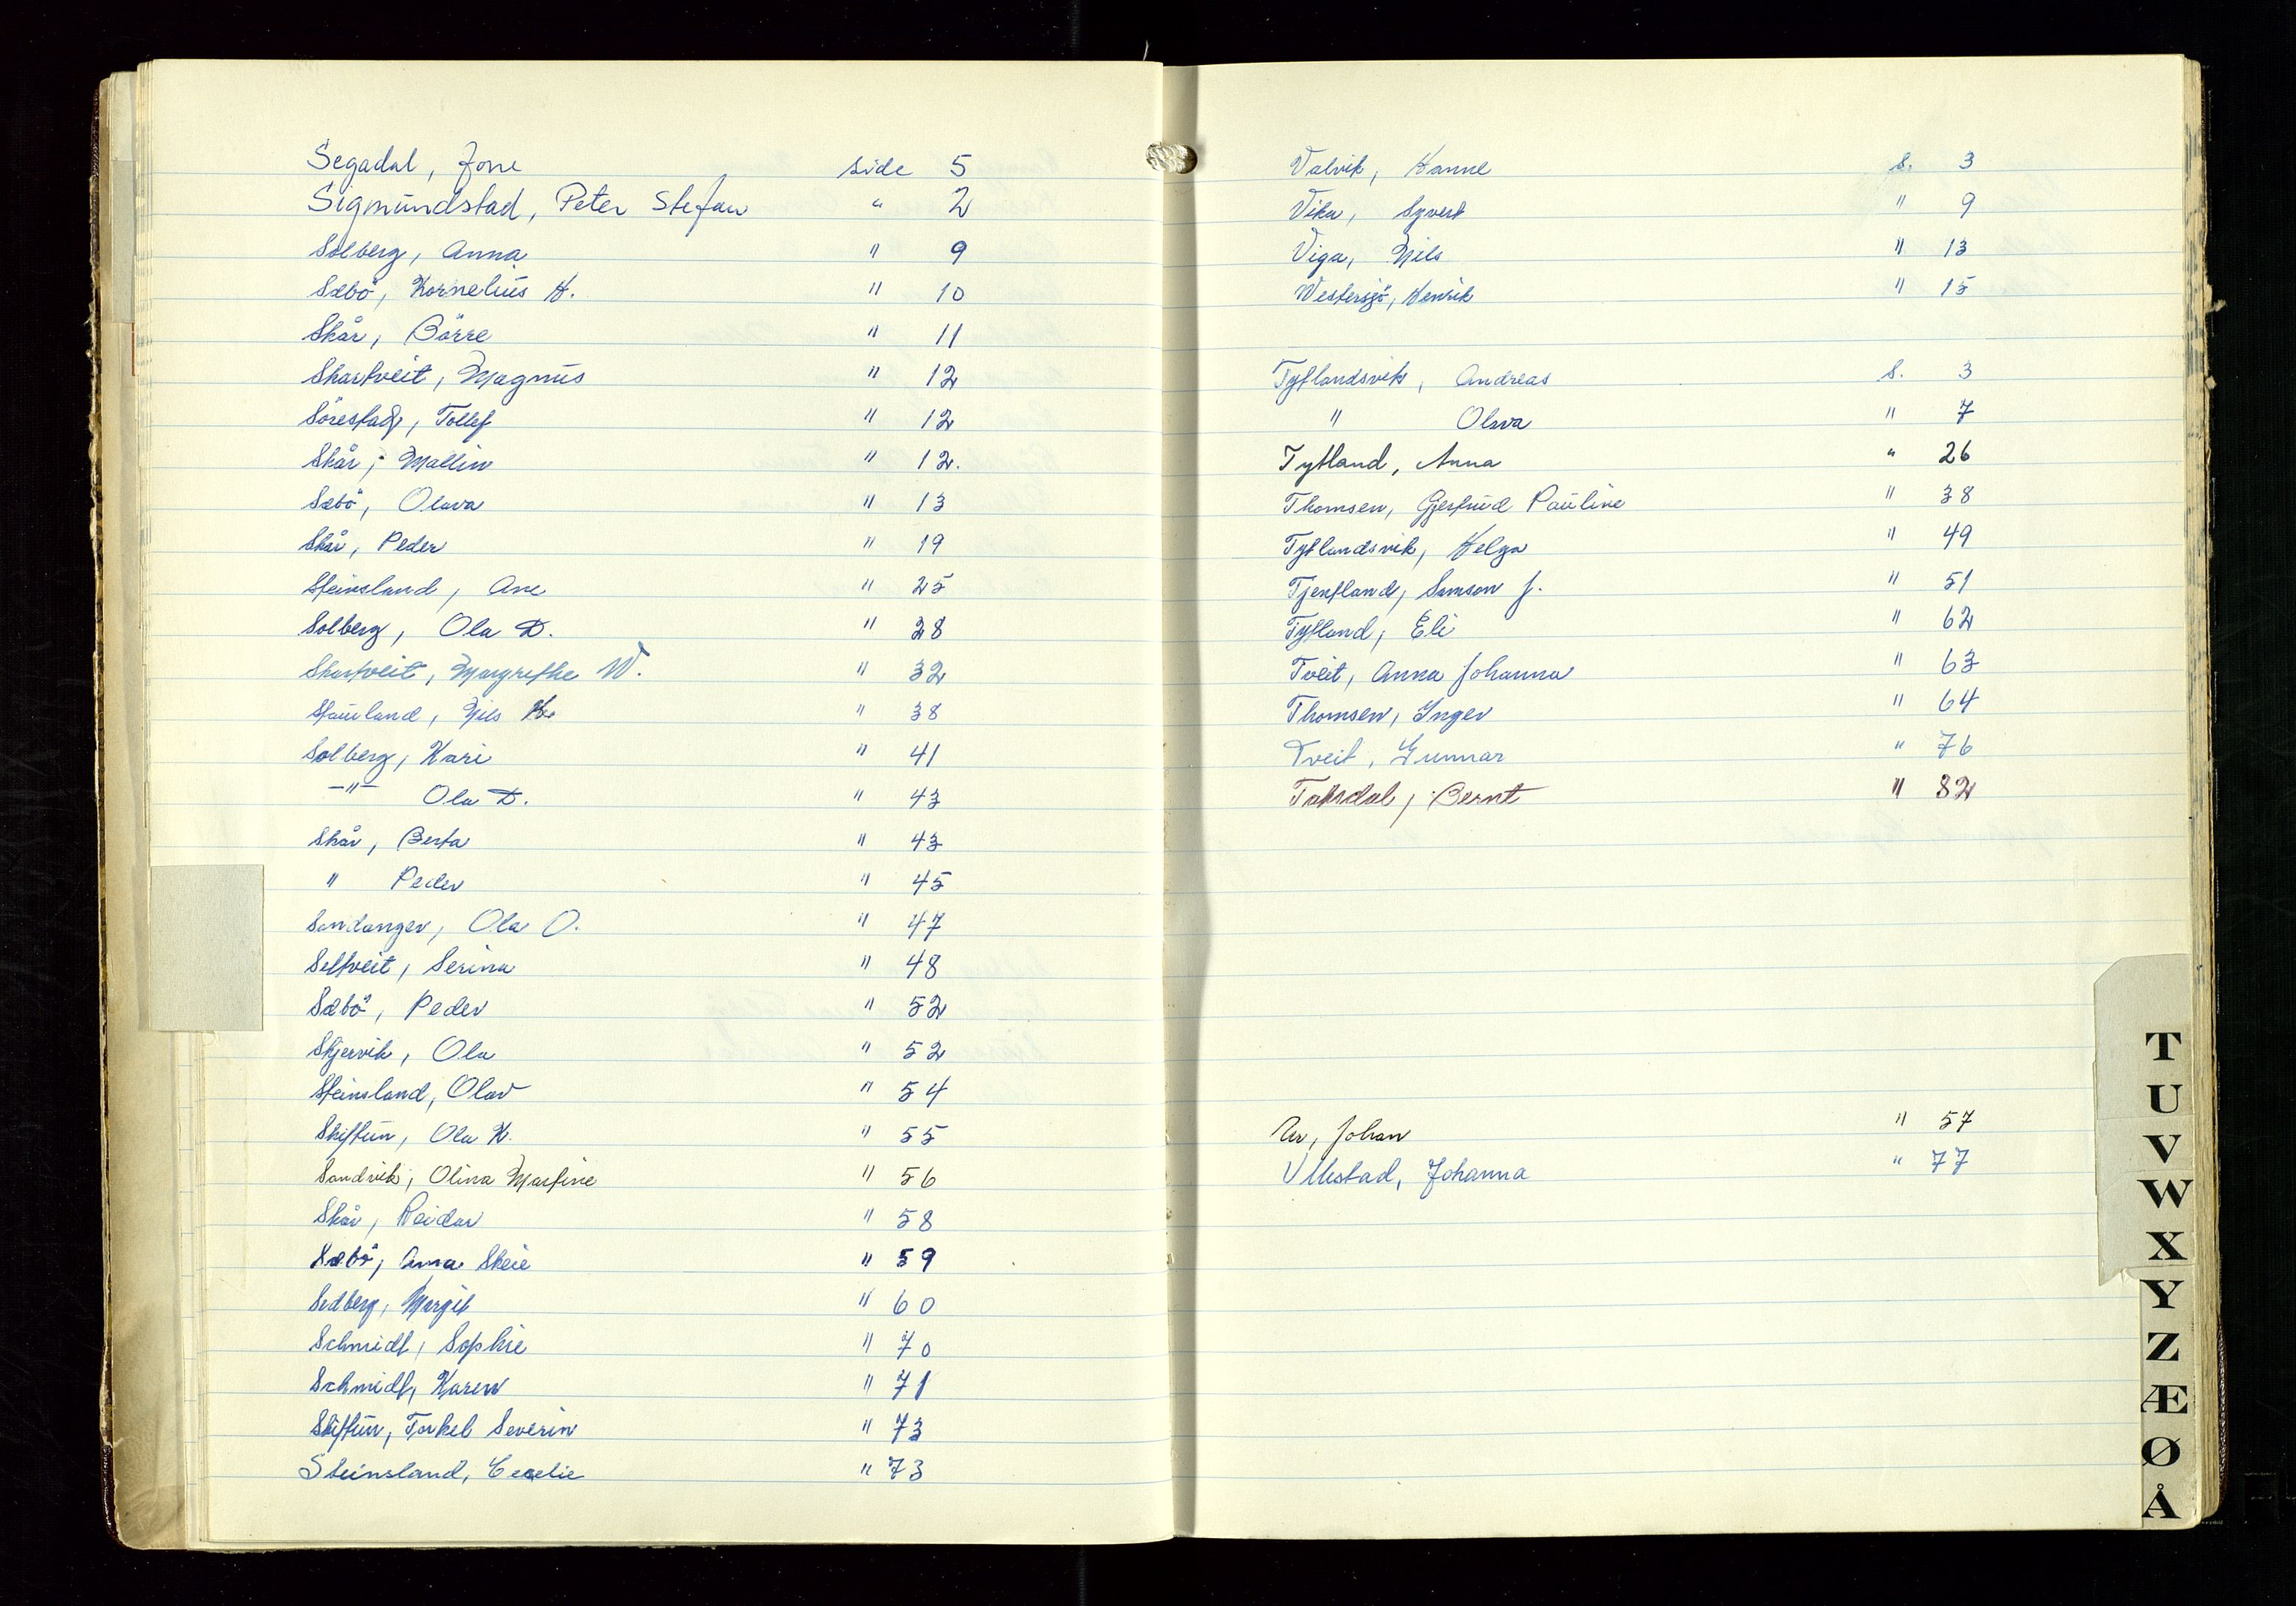 Segadal, Jone side 5
Sigmundstad, Peter Stefan " 2
Solberg, Anna " 9
Sæbö, Kornelius H. " 10
Skår, Börre " 11
Skartveit, Magnus " 12
Sörestad, Tollef " 12
Skår, Mallin " 12.
Sæbö, Olava " 13
Skår, Peder " 19
Steinsland, Ane " 25
Solberg, Ola D. " 28
Skartveit, Margrethe W. " 32
Stauland, Nils " 38
Solberg, Kari " 41
—"— Ola D. " 43
Skår, Berta " 43
" Peder " 45
Sandanger, Ola O. " 47
Seltveit, Serina " 48
Sæbö, Peder " 52
Skjervik, Ola " 52
Steinsland, Olav " 54
Skiftun, Ola K. " 55
Sandvik, Olina Martine " 56
Skår, Reidar " 58
Sæbö, Anna Skeie " 59
Sedberg, Margit " 60
Schmidt, Sophie " 70
Schmidt, Karen " 71
Skiftun, Torkel Severin " 73
Steinsland, Cecelie " 73
Valvik, Hanne S. 3
Vika, Syvert " 9
Viga, Nils " 13
Westersjö, Henrik " 15
Tytlandsvik, Andreas S. 3
" Olava " 7
Tytland, Anna " 26
Thomsen, Gjertrud Pauline " 38
Tytlandsvik, Helga " 49
Tjentland, Samson J. " 51
Tytland, Eli " 62
Tveit, Anna Johanna " 63
Thomsen, Inger " 64
Tveit, Gunnar " 76
Taksdal, Bernt " 82
Ur, Johan " 57
Ullestad, Johanna " 77
T
U
V
W
X
Y
Z
Æ
Ø
Å